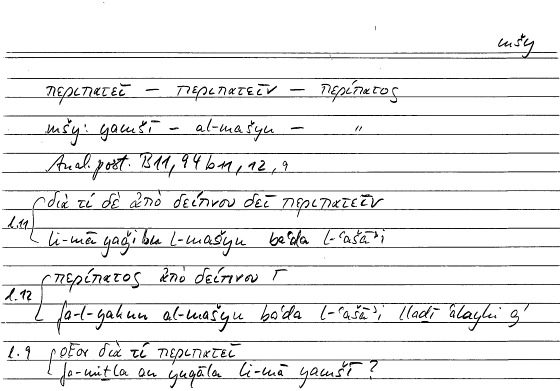 mšy
περιπατεῖ — περιπατεῖν — περίπατος
mšy: yamšī — al-mašyu — "
Anal. post. B 11, 94 b 11, 12, 9
διὰ τί δὲ ἀπὸ δείπνου δεῖ περιπατεῖν
l. 11
li-mā yaǧibu l-mašyu ba'da l-‘ašā’i
περίπατος ἀπὸ δείπνου Γ
l. 12
fa-l-yakun al-mašyu ba'da l-‘ašā’i lladī ‘alayhi ǧ
l. 9
οἷον διὰ τί περιπατεῖ
fa-mitla an yuqāla li-mā yamšī ?